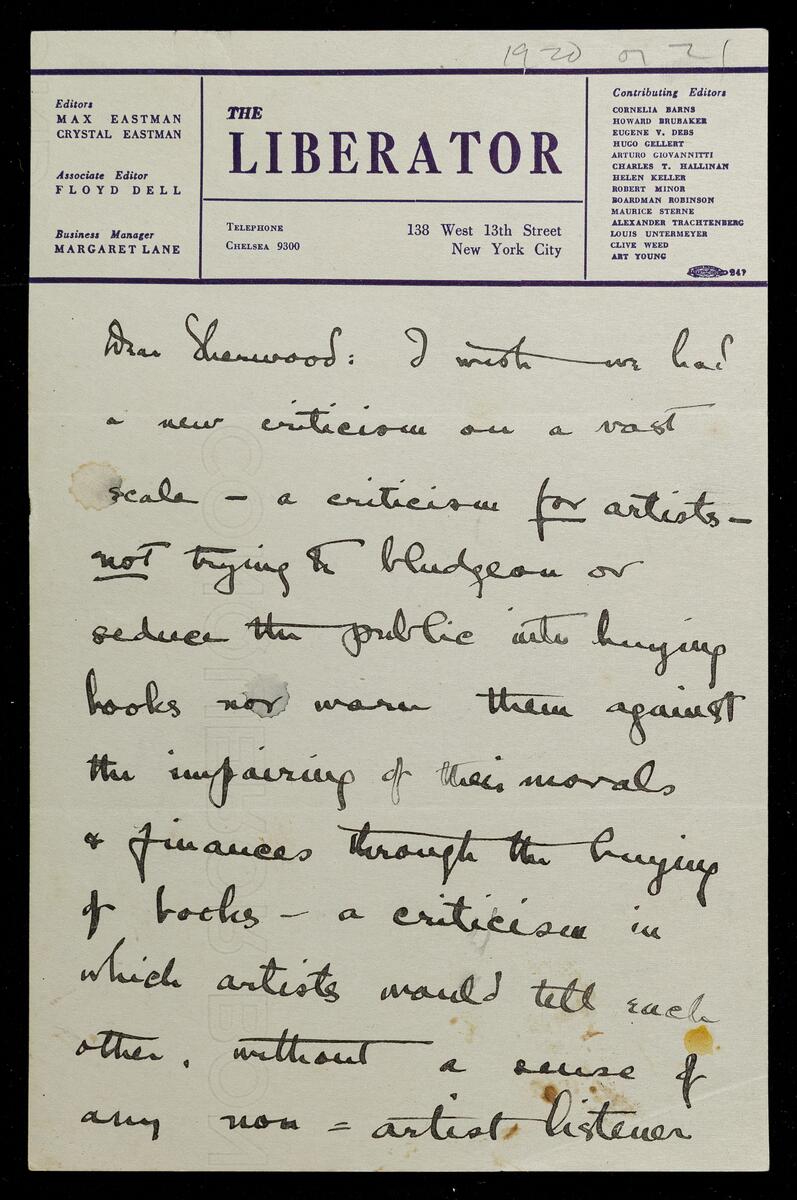 1920 or 21
Editors
MAX EASTMAN
CRYSTAL EASTMAN
Associate Editor
FLOYD DELL
Business Manager
MARGARET LANE
THE
LIBERATOR
TELEPHONE
CHELSEA 9300
138 West 13th Street
New York City
Contributing Editors
CORNELIA BARNS
HOWARD BRUBAKER
EUGENE V. DEBS
HUGO GELLERT
ARTURO GIOVANNITTI
CHARLES T. HALLINAN
HELEN KELLER
ROBERT MINOR
BOARDMAN ROBINSON
MAURICE STERNE
ALEXANDER TRACHTENBERG
LOUIS UNTERMEYER
CLIVE WEED
ART YOUNG
247
Dear Sherwood: I wish we had
a new criticism on a vast
scale — a criticism for artists —
not trying to bludgeon or
seduce the public into buying
books nor warn them against
the impairing of their morals
& finances through the buying
of books — a criticism in
which artists would tell each
other, without a sense of
any non=artist listener